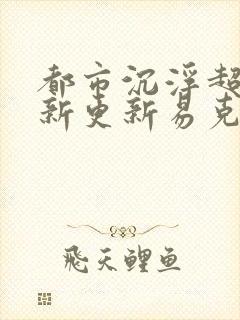 都市沉浮超
新更新易克
飞天鲤鱼